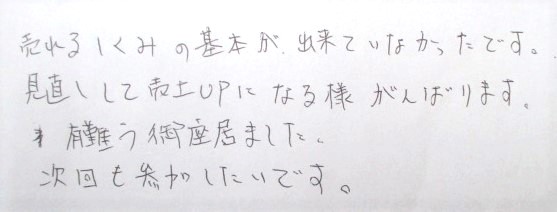 売れるしくみの基本が、出来ていなかったです。
見直しして売上UPになる様がんばります。
有難う御座居ました、
次回も参加したいです。